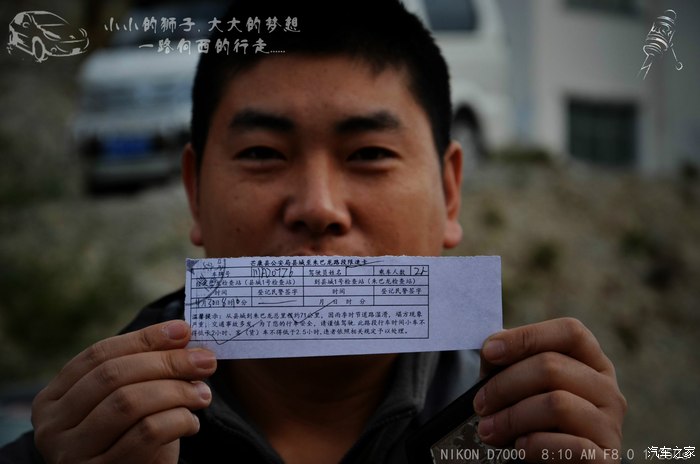 小小的狮子.大大的梦想
一路向西的行走......
芒康县公安局县城至朱巴龙路段限速卡
车牌号 驾驶员姓名 乘车人数
县城1号检查站) 到县城1号检查站(朱巴龙检查站)
时间 登记民警签字 时间 登记民警签字
月 日 时 分
温馨提示:从县城到朱巴龙总里程约71公里,因雨季节道路湿滑,塌方现象
严重,交通事故多发,为了您的行车安全,请谨慎驾驶,此路段行车时间小车不
得低于2小时,客(货)车不得低于2.5小时,违者依照相关规定予以处理。
NIKON D7000 8:10 AM F8.0
汽车之家